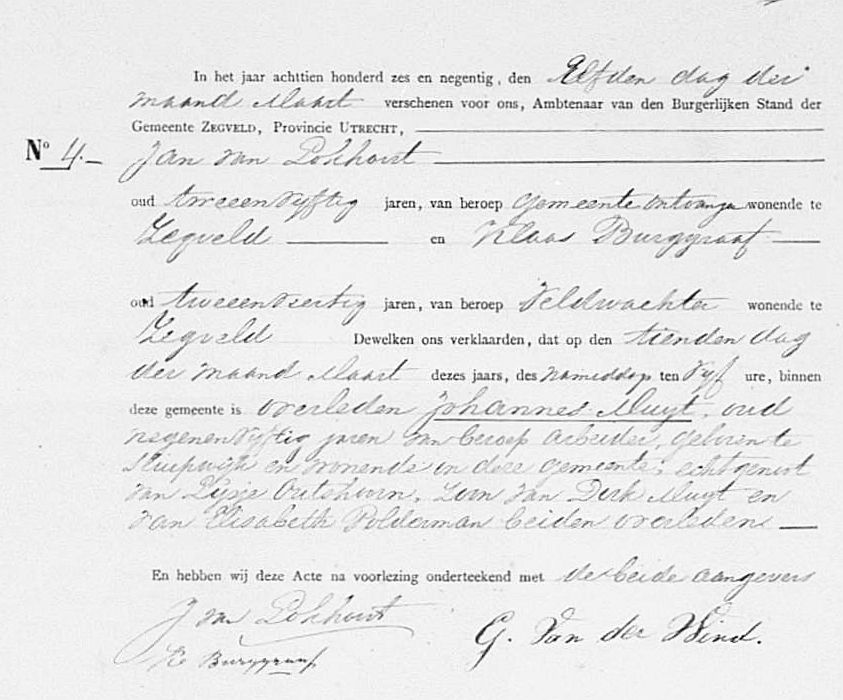 In het jaar achttien honderd zes en negentig, den Elfden dag der
maand Maart verschenen voor ons, Ambtenaar van den Burgerlijken Stand der
Gemeente ZEGVELD, Provincie UTRECHT,
No 4.
Jan van Lokhorst
oud tweeenvyftig jaren, van beroep gemeente ontvanger wonende te
Zegveld en Klaas Burggraaf
oud tweeenveertig jaren, van beroep Veldwachter wonende te
Zegveld Dewelken ons verklaarden, dat op den tienden dag
der maand Maart dezes jaars, des namiddags ten vyf ure, binnen
deze gemeente is overleden Johannes Muyt, oud
negenenvyftig jaren van beroep arbeider, geboren te
Sluipwijk en wonende in deze gemeente, echtgenoot
van Pijsje Outshoorn, Zoon van Dirk Muyt en
van Elisabeth Polderman beiden overleden
En hebben wij deze Acte na voorlezing onderteekend met de beide aangevers
J van Lokhorst
G. Van der Wind.
K Burggraaf